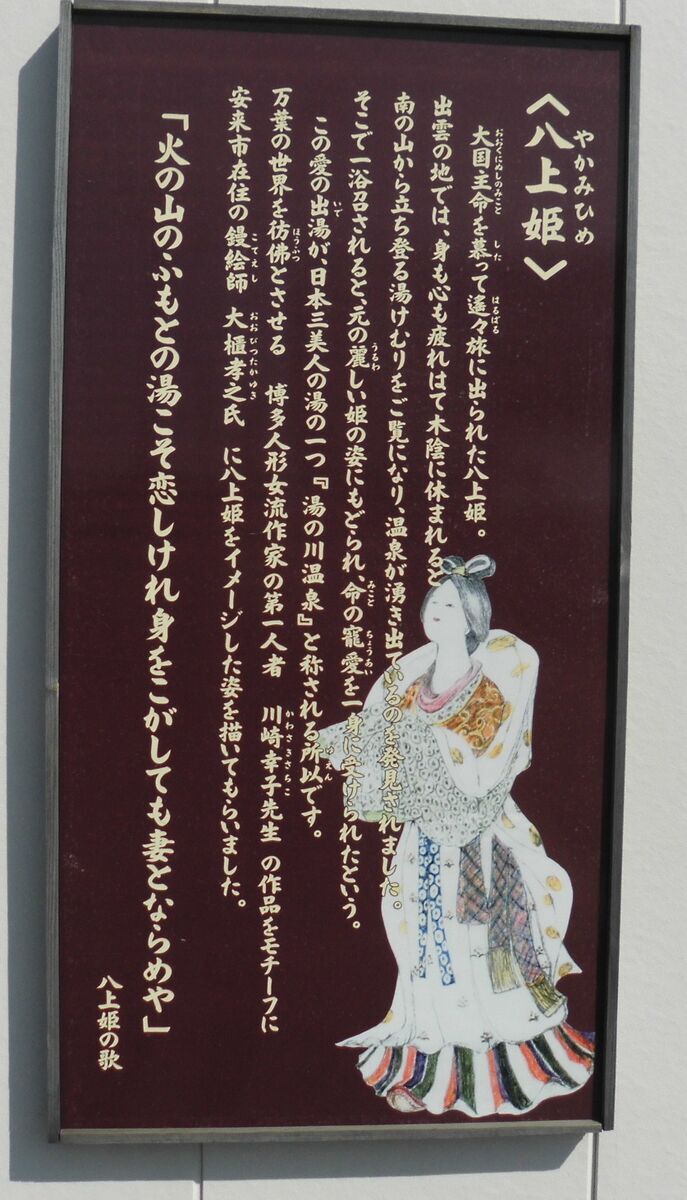 〈八上姫〉
やかみひめ
大国主命を慕って遙々旅に出られた八上姫。
おおくにぬしのみこと した はるばる
出雲の地では、身も心も疲れはて木陰に休まれると
南の山から立ち登る湯けむりをご覧になり、温泉が湧き出ているのを発見されました。
そこで一浴召されると、元の麗しい姫の姿にもどられ、命の寵愛を一身に受けられたという。
うるわ みこと ちょうあい
この愛の出湯が、日本三美人の湯の一つ『湯の川温泉』と称される所以です。
いで ゆえん
万葉の世界を彷佛とさせる 博多人形女流作家の第一人者 川崎幸子先生 の作品をモチーフに
ほうふつ かわさきさちこ
安来市在住の鏝絵師 大櫃孝之氏 に八上姫をイメージした姿を描いてもらいました。
こてえし おおびつたかゆき
「火の山のふもとの湯こそ恋しけれ身をこがしても妻とならめや」
八上姫の歌